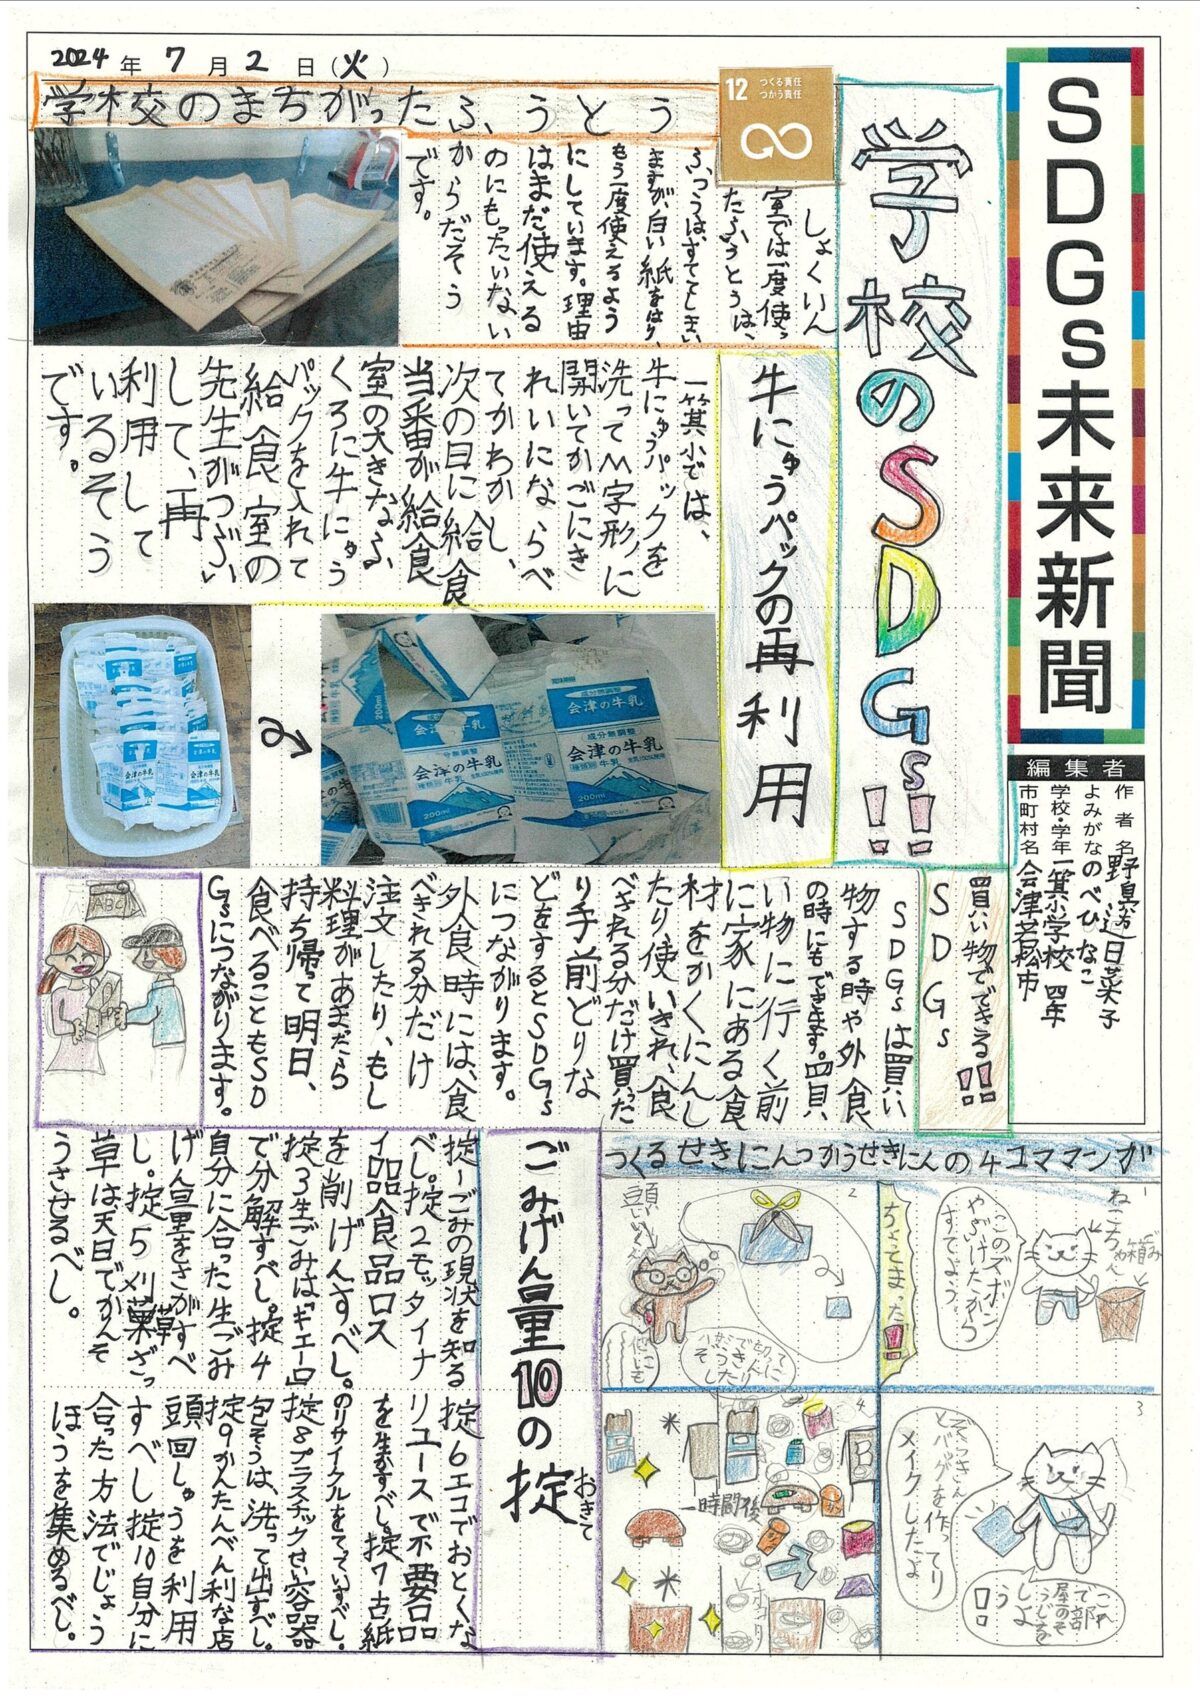 2024年7月2日(火)
SDGs未来新聞
編集者
作者名 野邉日菜子
よみがな のべひなこ
学校・学年 一箕小学校 四年
市町村名 会津若松市
学校のSDGs!!
12 つくる責任
つかう責任
学校のまちがったふうとう
しょくいん
室では一度使っ
たふうとうは、
ふつうは、すててしまい
ますが、白い紙をはり、
もう一度使えるよう
にしています。理由
はまだ使える
のにもったいない
からだそう
です。
牛にゅうパックの再利用
一箕小では、
牛にゅうパックを
洗ってM字形に
開いてかごにき
れいにならべ
てかわかし、
次の日に給食
当番が給食
室の大きなふ
くろに牛にゅう
パックを入れて
給食室の
先生がつぶい
して、再
利用して
いるそう
です。
会津の牛乳
成分無調整
会津の牛乳
種類別 牛乳
200ml
成分無調整
会津の牛乳
200ml
買い物でできる!!
SDGs
SDGsは買い
物する時や外食
の時にもできます。買
い物に行く前
に家にある食
材をかくにんし
たり、使いきれ、食
べきれる分だけ買った
り手前どりな
どをするとSDGs
につながります。
外食時には、食
べきれる分だけ
注文したり、もし
料理があまったら
持ち帰って明日、
食べることもSD
Gsにつながります。
ABC
ごみげん量10の掟
おきて
掟1ごみの現状を知る
べし。掟2モッタイナ
イ品食品ロス
を削げんすべし。
掟3生ごみは「キエーロ」
で分解すべし。掟4
自分に合った生ごみ
げん量をさがすべ
し。掟5刈草ざっ
草は、天日でかんそ
うさせるべし。
掟6エコでおとくな
リユースで不要品
を生かすべし。掟7古紙
のリサイクルをてっていすべし。
掟8プラスチックせい容器
包そうは、洗って出すべし。
掟9かんたんべん利な店
頭回しゅうを利用
すべし掟10自分に
合った方法でじょう
ほうを集めるべし。
つくるせきにんつかうせきにんの4コママンガ
1
ねこちゃん
ごみ箱
このズボン
やぶけたから
すてよう。
ちょっとまった!
2
頭いいくん
ハサミで切って
ぞうきんに
したり
他にも
3
ぞうきん
とバッグを作って
メイクしたよ
これ
で部
屋のそ
うじを
しよ
う!!
4
一時間後